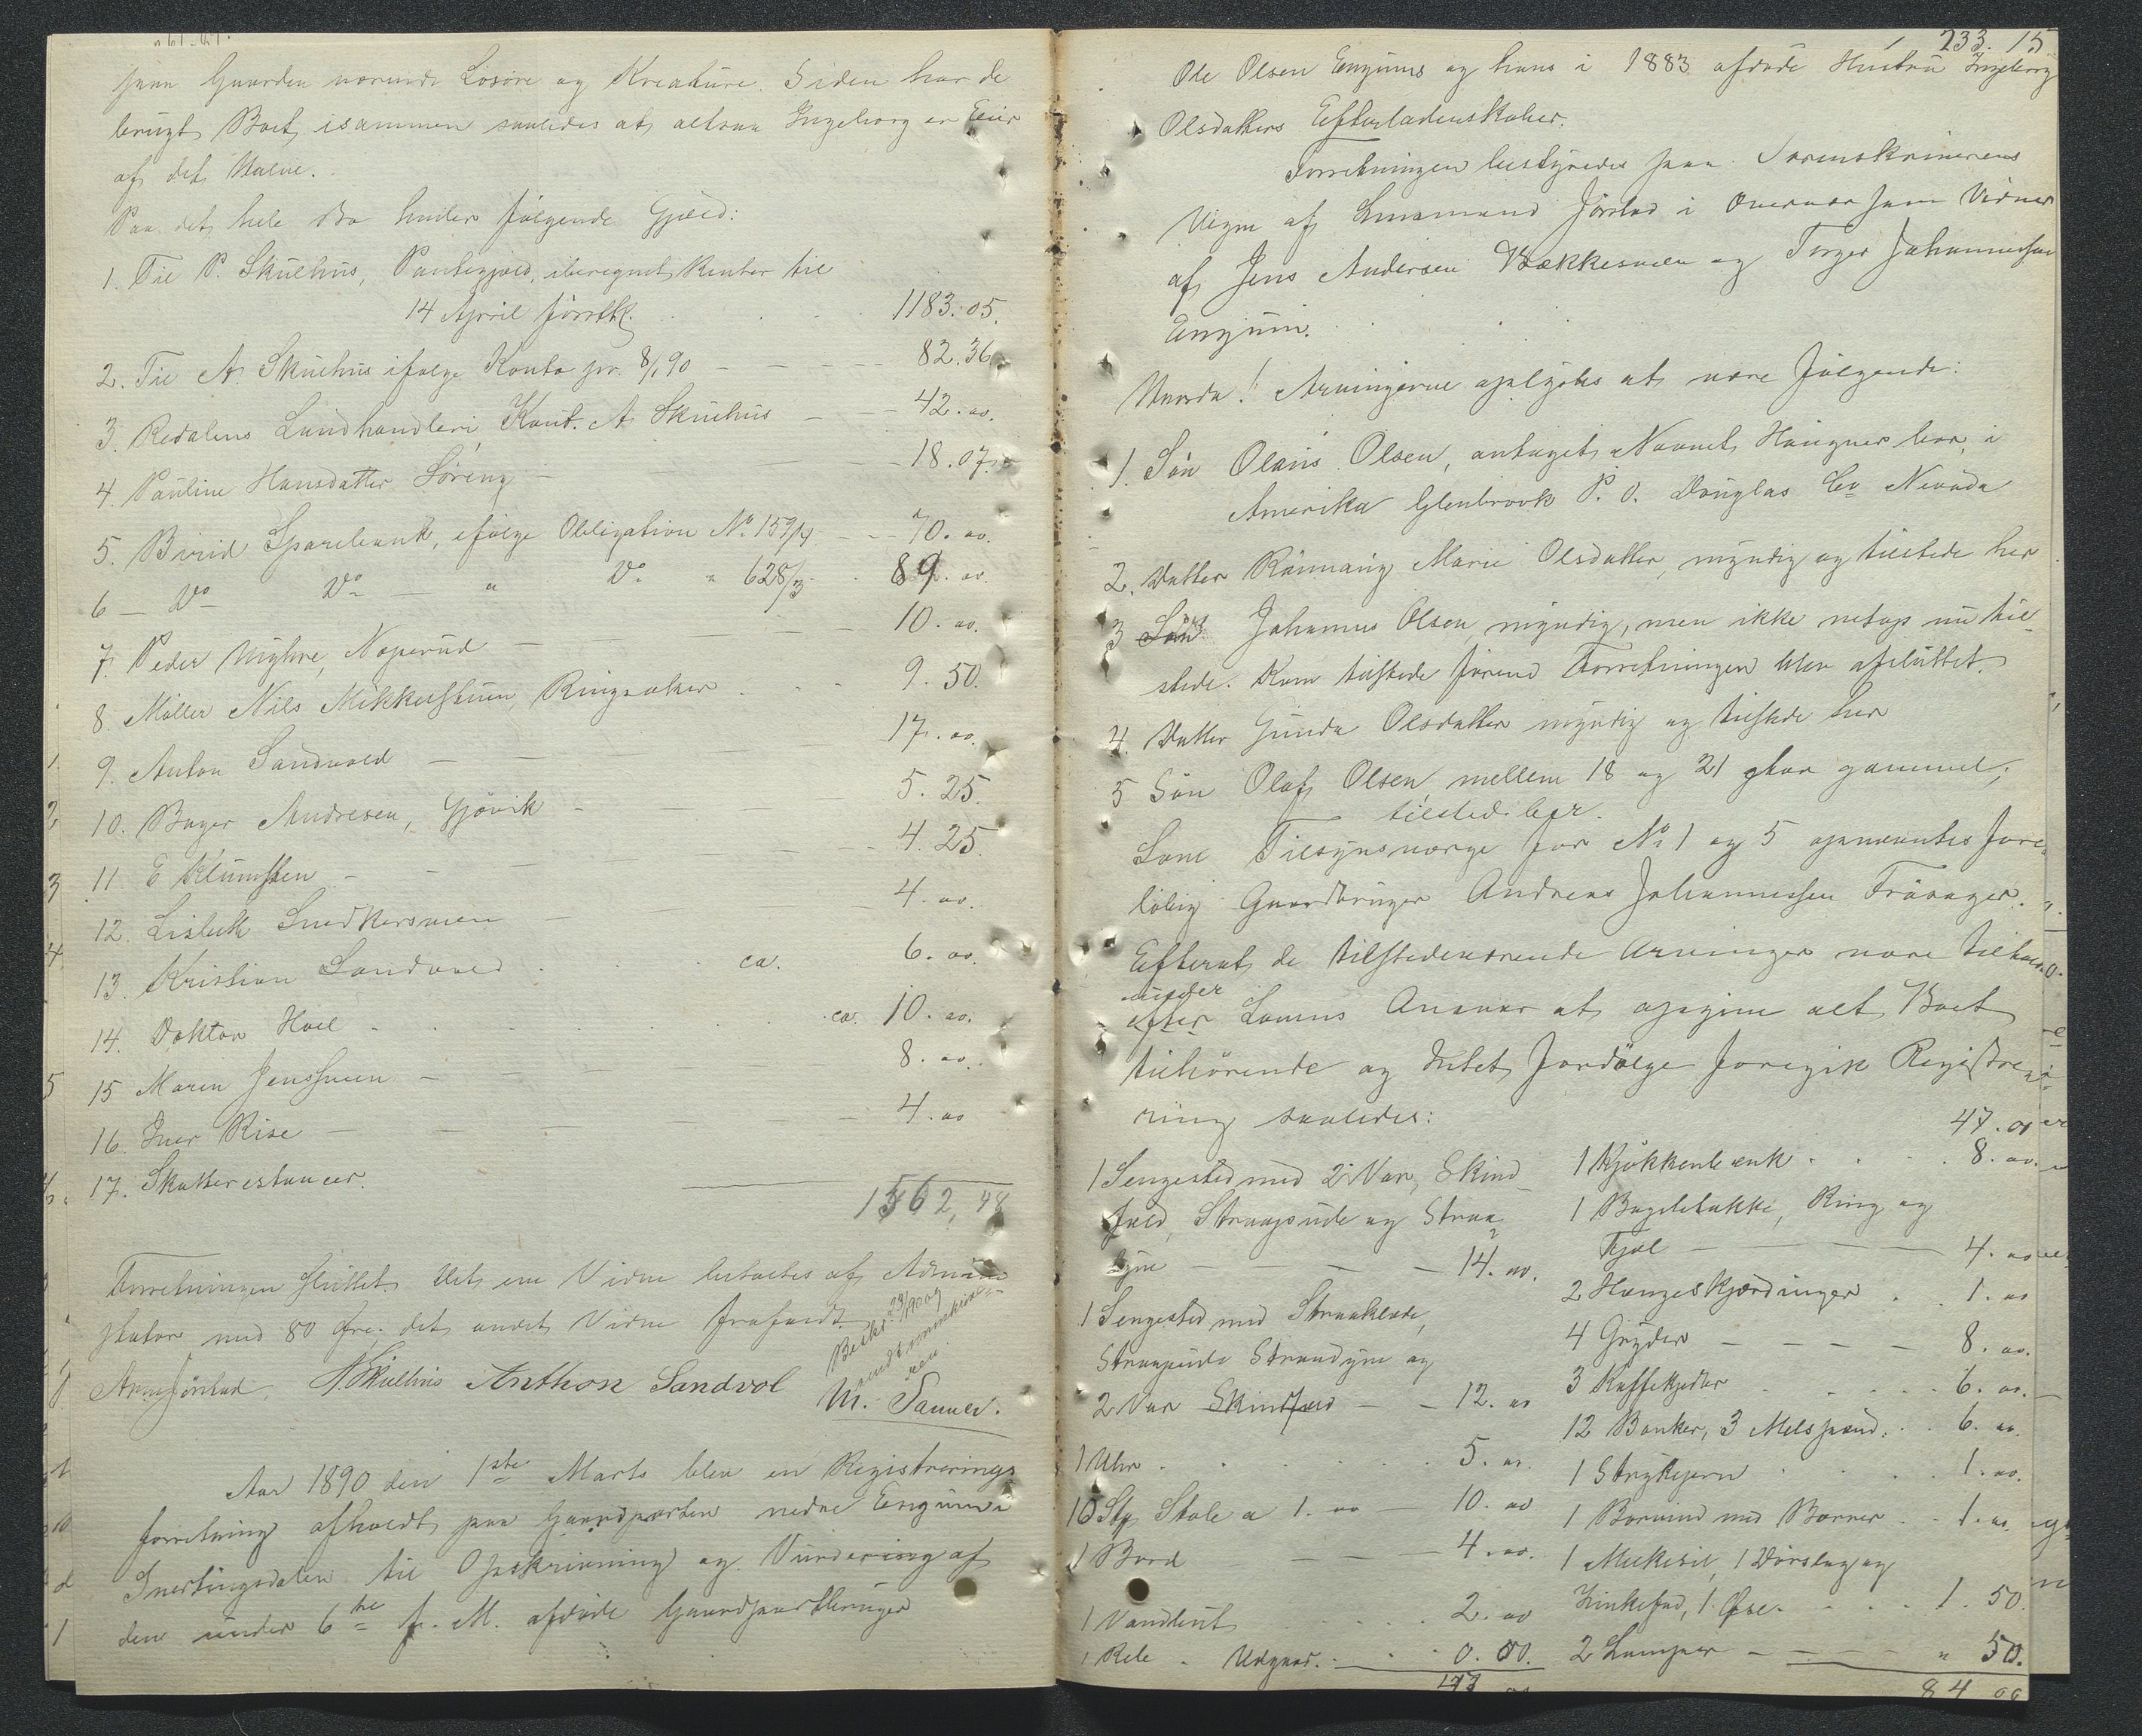 paa Gaarden værende Løsøre og Kreature. Siden har de
brugt Boet isammen saaledes at altsaa Ingeborg er Eier
af det Halve.
Paa det hele Bo hviler følgende Gjæld:
1. Til P. Skulhus, Pantegjæld, iberegnet Renter til
14 April førstk. 1183.05.
2. Til A. Skulhus ifølge Konto pr. 8/1 90 — 82.36
3. Redalens Landhandleri, Kont. A. Skulhus — 42.00.
4. Pauline Hansdatter Søreng — 18.07.
5. Birid Sparebank, ifølge Obligation No 159/4 — 70.00.
6 — Do Do — " Do " 628/3 89.00.
7. Peder Myhre, Noperud — 10.00.
8. Møller Nils Mikkelstuen, Ringsaker 9.50.
9. Anton Sandvold — 17.00.
10. Bager Andresen, Gjøvik — 5.25.
11 E Klumsten — 4.25.
12. Lisbeth Snedkersveen — 4.00.
13. Kristian Sandvold ca. 6.00.
14. Doktor Hoel ca. 10.00.
15 Maren Jenssveen — 8.00.
16. Iver Rise — 4.00
17. Skatterestancer.
1562,48
Forretningen sluttet. Det ene Vidne betaltes af Admini-
strator med 80 Øre; det andet Vidne frafaldt
Arne Jørstad. A. Skulhus Anthon Sandvol M. Sauer.
Aar 1890 den 1ste Marts blev en Registrerings
forretning afholdt paa Gaardparten nedre Engum i
Snertingsdalen til Opskrivning og Vurdering af
den under 6te f. M. afdøde Gaardpartbruger
233. 15
Ole Olsen Engums og hans i 1883 afdøde Hustru Ingeborg
Olsdatters Efterladenskaber.
Forretningen bestyredes paa Sorenskriverens
Vegne af Lensmand Jørstad i Overvær som Vidner
af Jens Andersen Bækkesveen og Torger Johannessen
Engum.
Hvorda! Arvingerne oplystes at være følgende:
1. Søn Olaus Olsen, antaget Navnet Haugner bor i
Amerika Glenbrook P. O. Douglas Co Nevada
2. Datter Rønnaug Marie Olsdatter, myndig og tilstede her
3 Søn Johannes Olsen myndig, men ikke netop nu til-
stede. Kom tilstede førend Forretningen blev afsluttet.
4. Datter Gunda Olsdatter myndig og tilstede her
5 Søn Olaf Olsen, mellem 18 og 21 Aar gammel;
tilsted her.
Som Tilsynsværge for No 1 og 5 opnævntes fore-
løbig Gaardbruger Andreas Johannessen Frøsager.
Efterat de tilstedeværende Arvinger vare tilholdt
under
efter Lovens Ansvar at opgive alt Boet
tilhørende og Intet fordølge foregik Registre-
ring saaledes:
1 Sengested med 2 Var, Skind
fæld, Straapude og Straa
dyne — 14.00.
1 Sengested med Straaklæde,
Straapude Straadyne og
2 Var Skindfæld — 12.00
1 Uhr 5.00.
10 Stk Stole a 1.00 — 10.00
1 Bord — 4.00.
1 Vandbut 2.00
1 Rele - Udgaar. 0.00.
47.00
1 Kjøkkenbænk 8.00.
1 Bagetakke, Ring og
Fjøl — 4.00
2 Hængeskjærdinger 1.00
4 Gryder — 8.00.
3 Kaffekjedler 6.00.
12 Bonker, 3 Melspænd 6.00.
1 Strykejern 1.00.
1 1.00.
1 Melkesil, 1 Dørslag og
Zinkefad, 1 Øse 1.50.
2 Lamper — " 50.
84 00